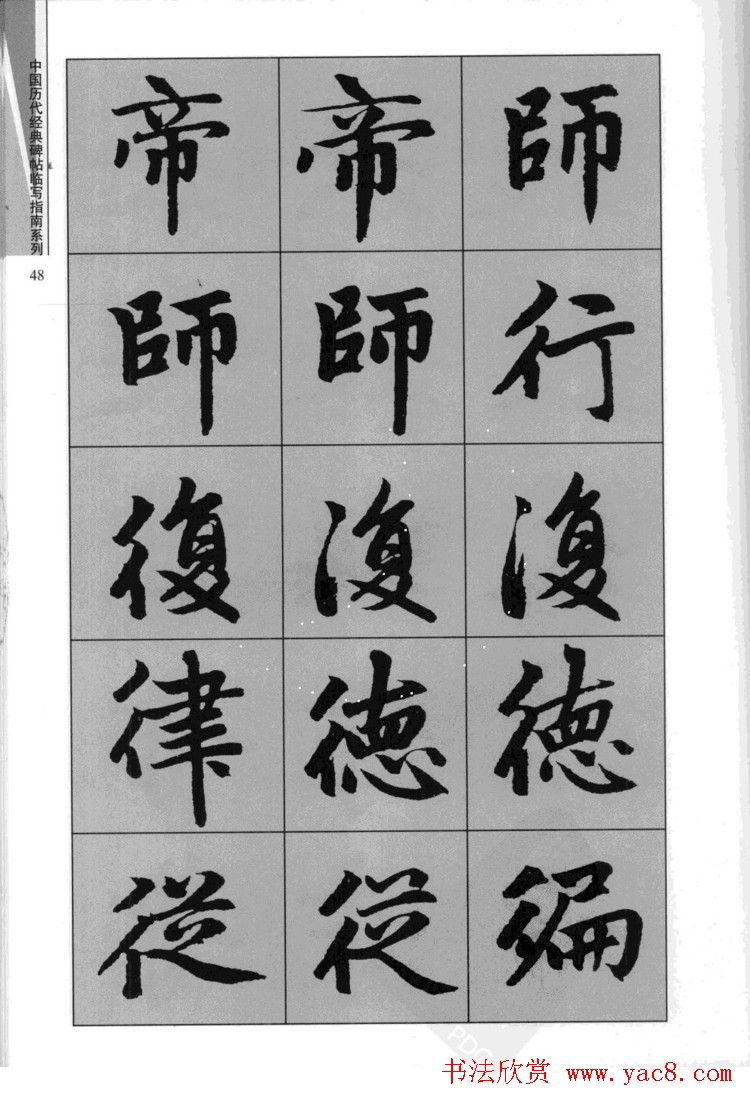 中国历代经典碑帖临写指南系列
48
帝 帝 師
師 師 行
復 復 復
律 德 德
從 從
书法欣赏 www.yac8.com